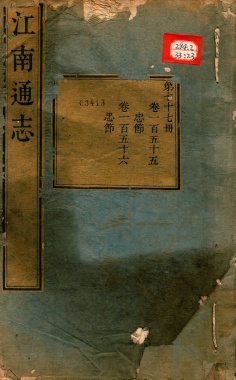 江南通志
284.2
33:23
第七十七冊
卷一百五十五
忠節
卷一百五十六
忠節
03413